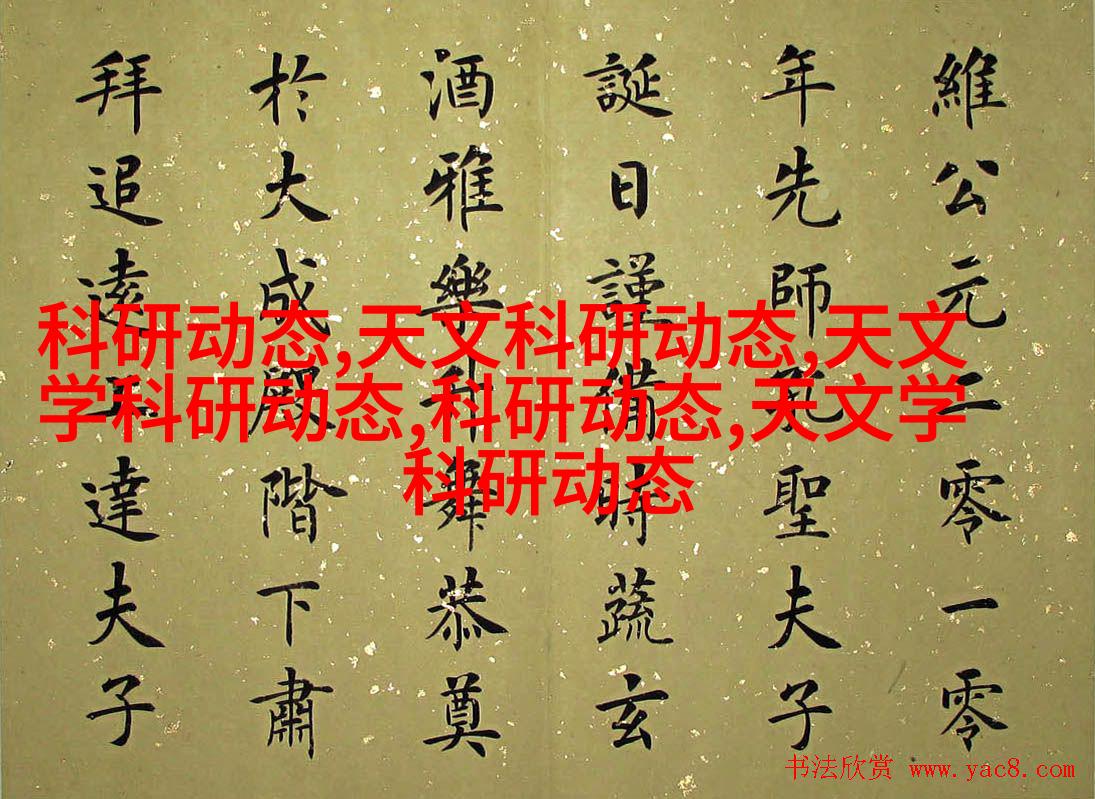 維公元二零一零
年先師孔聖夫子
誕日謹備時蔬玄
酒雅樂舞恭奠
於大成殿階下肅
拜追逺達夫子
科研动态,天文科研动态,天文
学科研动态,科研动态,天文学
科研动态
书法欣赏 www.yac8.com